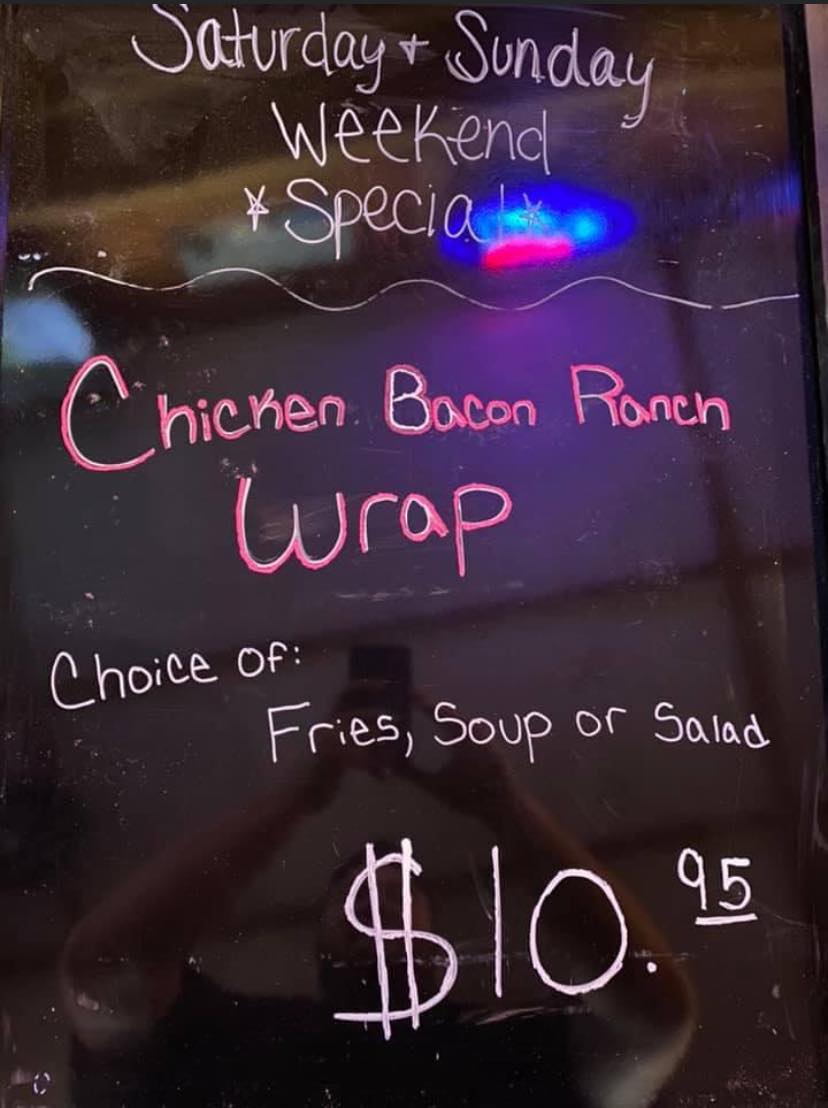 Saturday + Sunday
Weekend
*Special*
Chicken Bacon Ranch
Wrap
Choice of:
Fries, Soup or Salad
$10.95